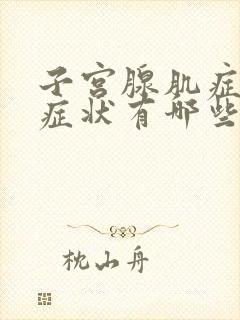 子宫腺肌症
症状有哪些
枕山舟